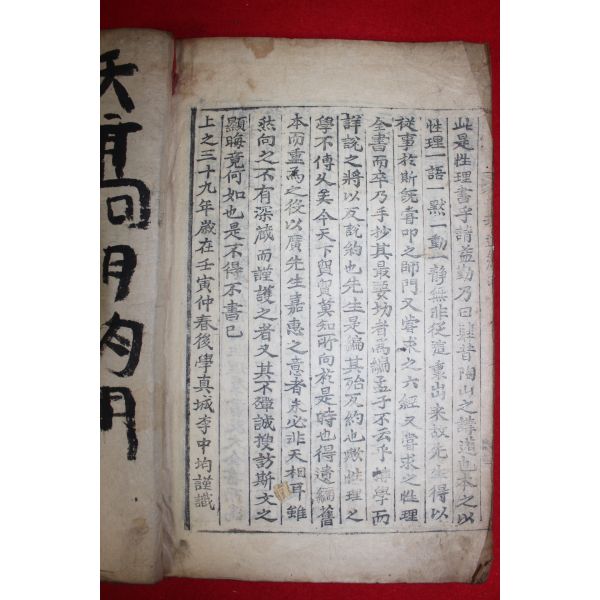 此是性理書乎請益勤乃曰肆昔陶山之講道也本之以
性理一語一默一動一靜無非從這裏出来故先生得以
從事於斯旣嘗叩之師門又嘗求之六經又嘗求之性理
全書而卒乃手抄其最要切者爲編孟子不云乎博學而
詳說之將以反說約也先生是編其殆反約也歟性理之
學不傳久矣今天下貿貿莫知所向於是時也得遺編舊
本而重爲之後以廣先生嘉惠之意者未必非天相耳雖
然向之不有深藏而謹護之者又其不殫誠搜訪斯文之
顯晦竟何如也是不得不書已
上之三十九年歲在壬寅仲春後學真城李中均謹識